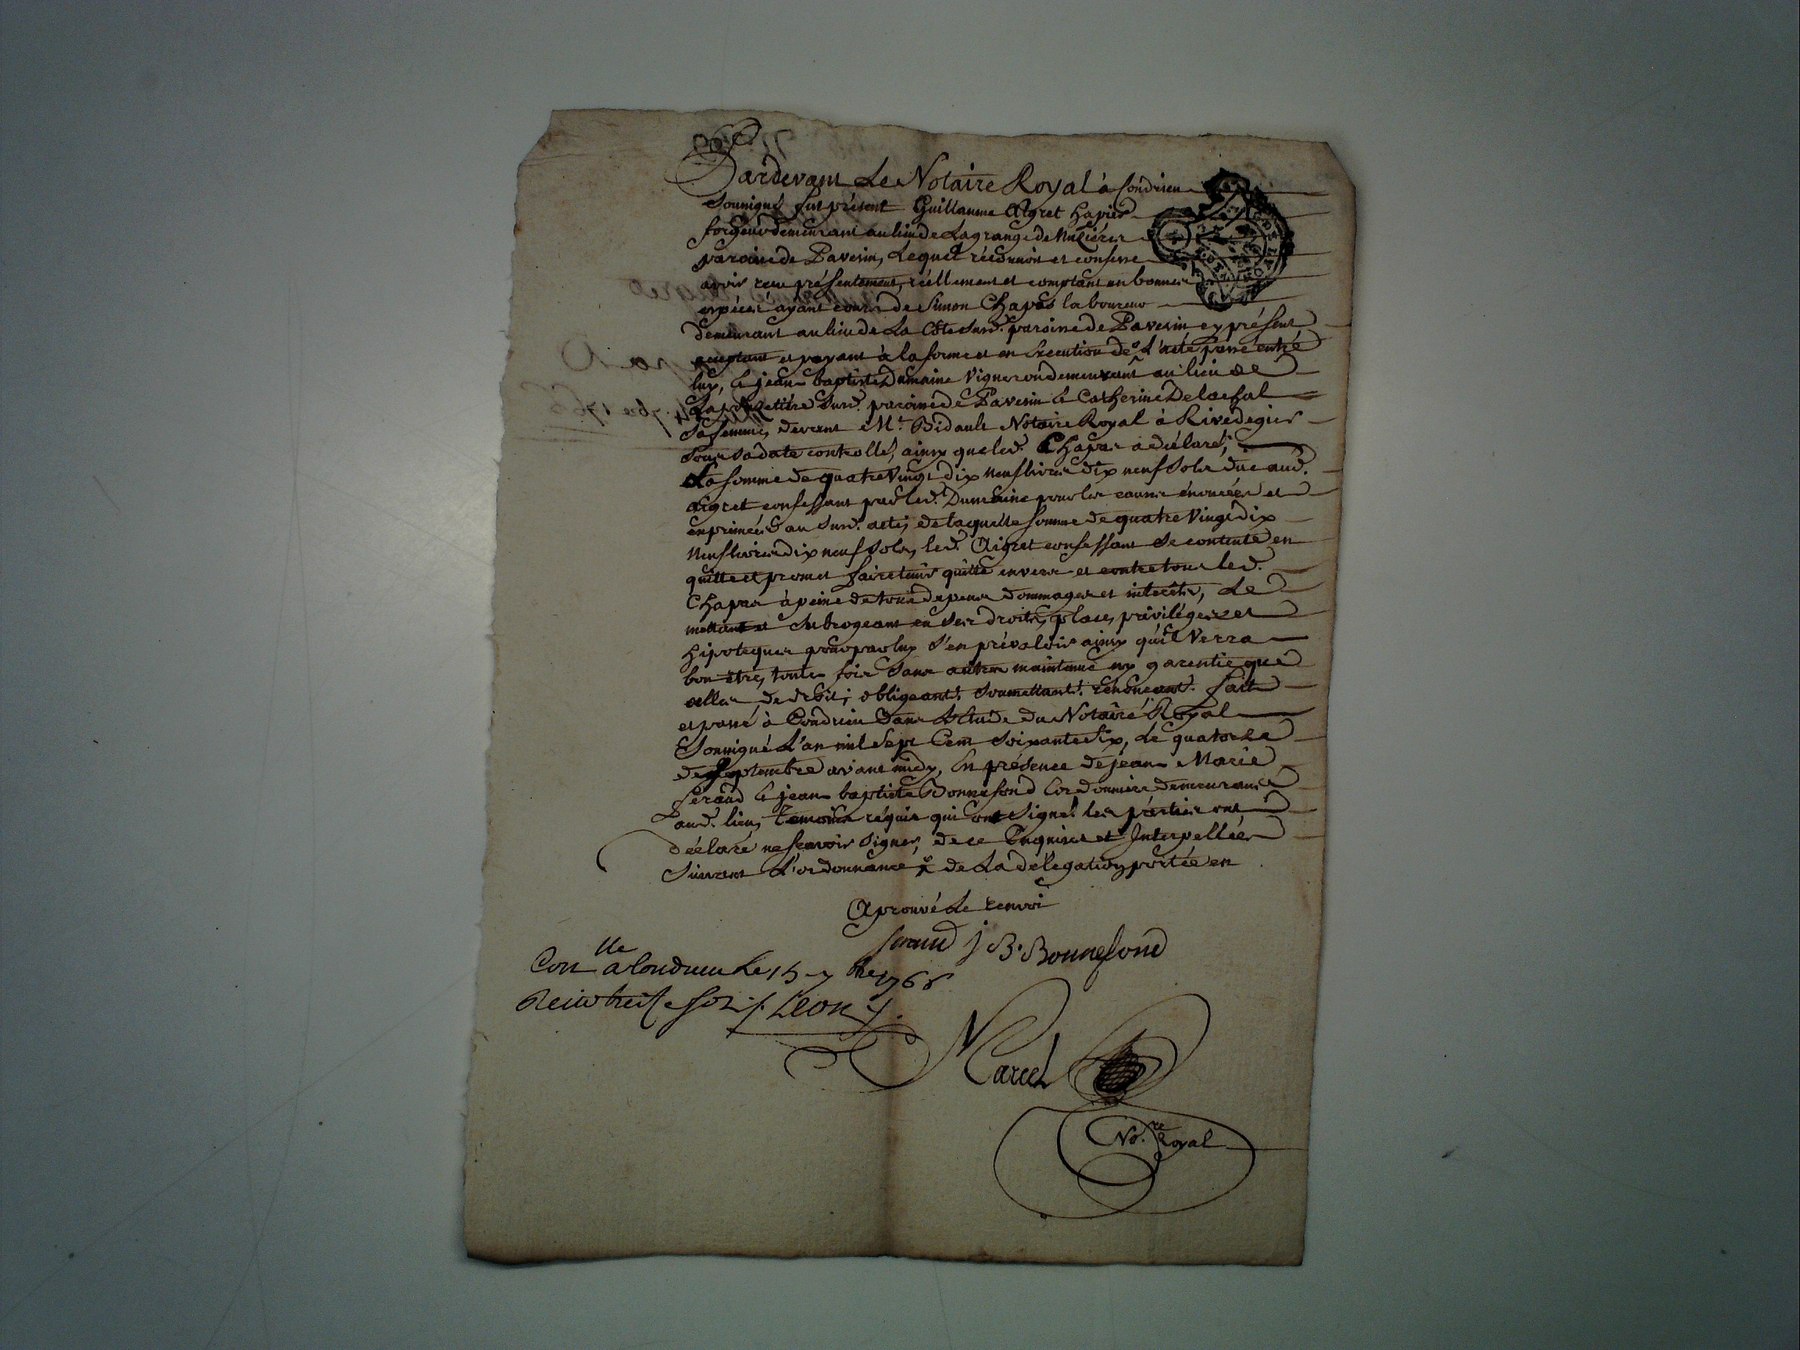 Pardevant Le Notaire Royal à Condrieu
Soussigné fut présent Guillaume Aigret
forgeur demeurant au lieu de Lagrange de
paroisse de Pavesin, Lequel reconnoit et confesse
avoir reçu présentement, réellement et comptant en bonnes
espèces ayant cours de Simon Chapas laboureur
demeurant au lieu de La Côte Susd. paroisse de Pavesin cy présent
acceptant et payant à la forme et en Execution de l'acte passé entre
luy, & jean baptiste Dumaine Vigneron demeurant au lieu de
Susd. paroisse de Pavesin & Catherine Delachal
Sa femme, devant Mr. Bidault Notaire Royal à Rivedegier
Sous sa date controllé, ainsy que led. Chapas a déclaré,
La somme de quatre Vingt dix neuf livres dix neuf Sols due aud.
aigret confessant par led. Dumaine pour les causes énoncées et
exprimées au Susd. acte, de laquelle somme de quatre Vingt dix
Neuf livres dix neuf Sols, led. Aigret confessant Se contente en
quitte et promet faire tenir quitte envers et contre tous led.
Chapas à peine de tous depens dommages et interêts, Le
mettant et Subrogeant en Ses droits, place, privilèges et
hipoteques pour par luy S'en prévaloir ainsy qu'il Verra
bon être, toutes fois Sans autre maintenue ny garentie que
celles de droit; obligeant. Soumettant. renonçant. fait
et passé à Condrieu Dans L'Etude du Notaire Royal
Soussigné L'an mil Sept Cent Soixante Six, Le quatorze
de Septembre avant midy, En présence de jean Marie
feraud & jean baptiste Bonnefond Cordonniers demeurants
aud. lieu, Temoins réquis qui ont Signé. les parties ont
déclaré ne Sçavoir Signer, de ce Enquises et Interpellées
Suivant L'ordonnance x de La délégation portée en
Aprouvé Le renvoi
feraud J B. Bonnefond
Conlle a Condrieu Le 15 7bre 1766
Reçu treize sols Leon
Marcel
No.re Royal